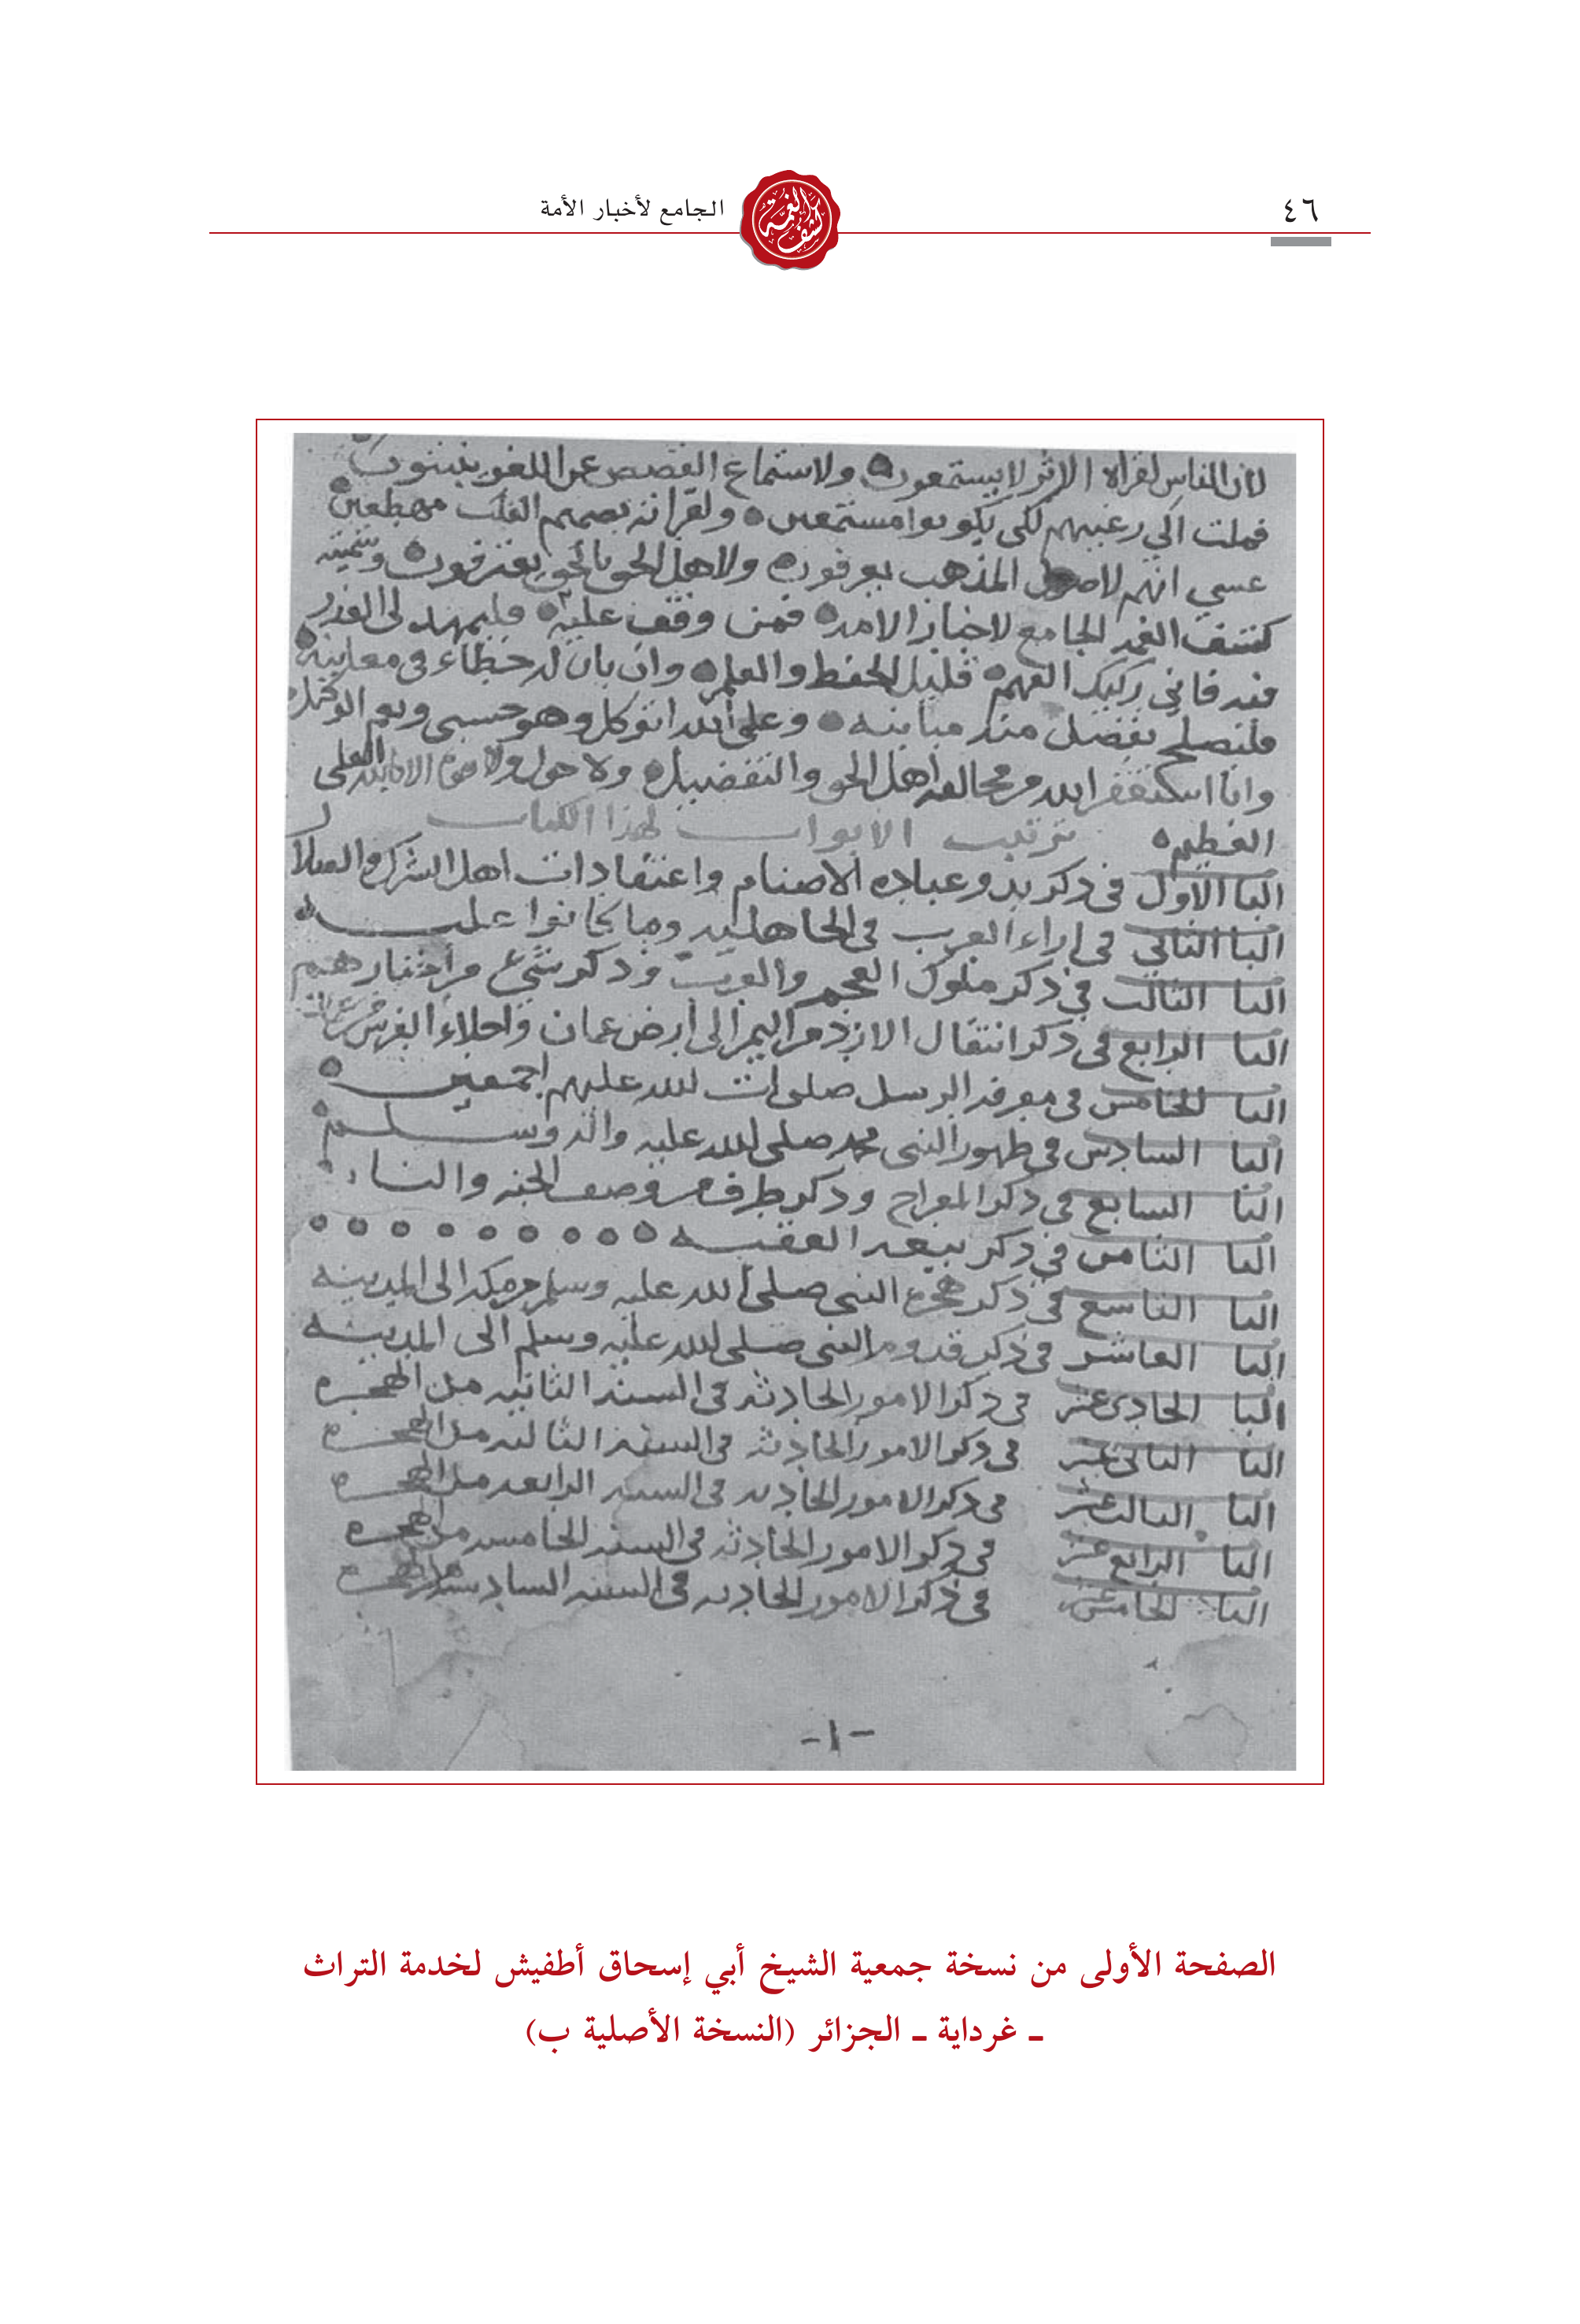 ٤٦
كشف الغمة
الجامع لأخبار الأمة
لان الناس لقراة الاثر لا يستمعون ولاستماع القصص عن اللغو ينبتون
فملت الى رغبتهم لكي يكونوا مستمعين ولقرانه بصميم القلب مهطعين
عسي انهم لاصول المذهب يعرفون ولاهل الحق بالحق يعترفون وسميته
كشف الغمه الجامع لاخبار الامه فمن وقف عليه فليمهد لى العذر
منه فاني ركيك الفهم قليل الحفظ والعلم وان بان له خطاء في معاينه
فليصلح بفضل منه مباينه وعلى الله اتوكل وهو حسبي ونعم الوكيل
وانا استغفر الله من مخالفه اهل الحق والتفضيل ولا حول ولا قوة الا بالله العلى
العظيم ترتيب الابواب لهذا الكتاب
البا الاول في ذكر بدو عباده الاصنام واعتقادات اهل الشرك والضلال
البا الثاني في اراء العرب في الجاهليه وما كانوا عليه
البا الثالث في ذكر ملوك العجم والعرب وذكر شيء من اخبارهم
البا الرابع في ذكر انتقال الازد من اليمن الى ارض عمان واجلاء الفرس من عمان
البا الخامس في معرفه الرسل صلوات الله عليهم اجمعين
البا السادس في ظهور النبي محمد صلى الله عليه واله وسلم
البا السابع في ذكر المعراج وذكر طرف من وصف الجنه والنار
البا الثامن في ذكر بيعه العقبه
البا التاسع في ذكر هجرة النبي صلى الله عليه وسلم من مكه الى المدينه
البا العاشر في ذكر قدوم النبي صلى الله عليه وسلم الى المدينه
البا الحادي عشر في ذكر الامور الحادثه في السنه الثانيه من الهجره
البا الثاني عشر في ذكر الامور الحادثه في السنه الثالثه من الهجره
البا الثالث عشر في ذكر الامور الحادثه في السنه الرابعه من الهجره
البا الرابع عشر في ذكر الامور الحادثه في السنه الخامسه من الهجره
البا الخامس عشر في ذكر الامور الحادثه في السنه السادسه من الهجره
-١-
الصفحة الأولى من نسخة جمعية الشيخ أبي إسحاق أطفيش لخدمة التراث
ـ غرداية ـ الجزائر (النسخة الأصلية ب)